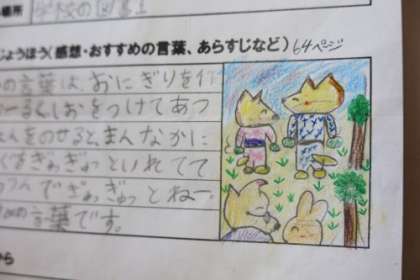 場所 学校の図書室
じょうほう(感想・おすすめの言葉、あらすじなど) 64ページ
の言葉は、おにぎりを
るく しおをつけてあつ
をのせると、まんなかに
ぎゅぎゅっといれてて
でぎゅぎゅっとねー。
の言葉です。
から